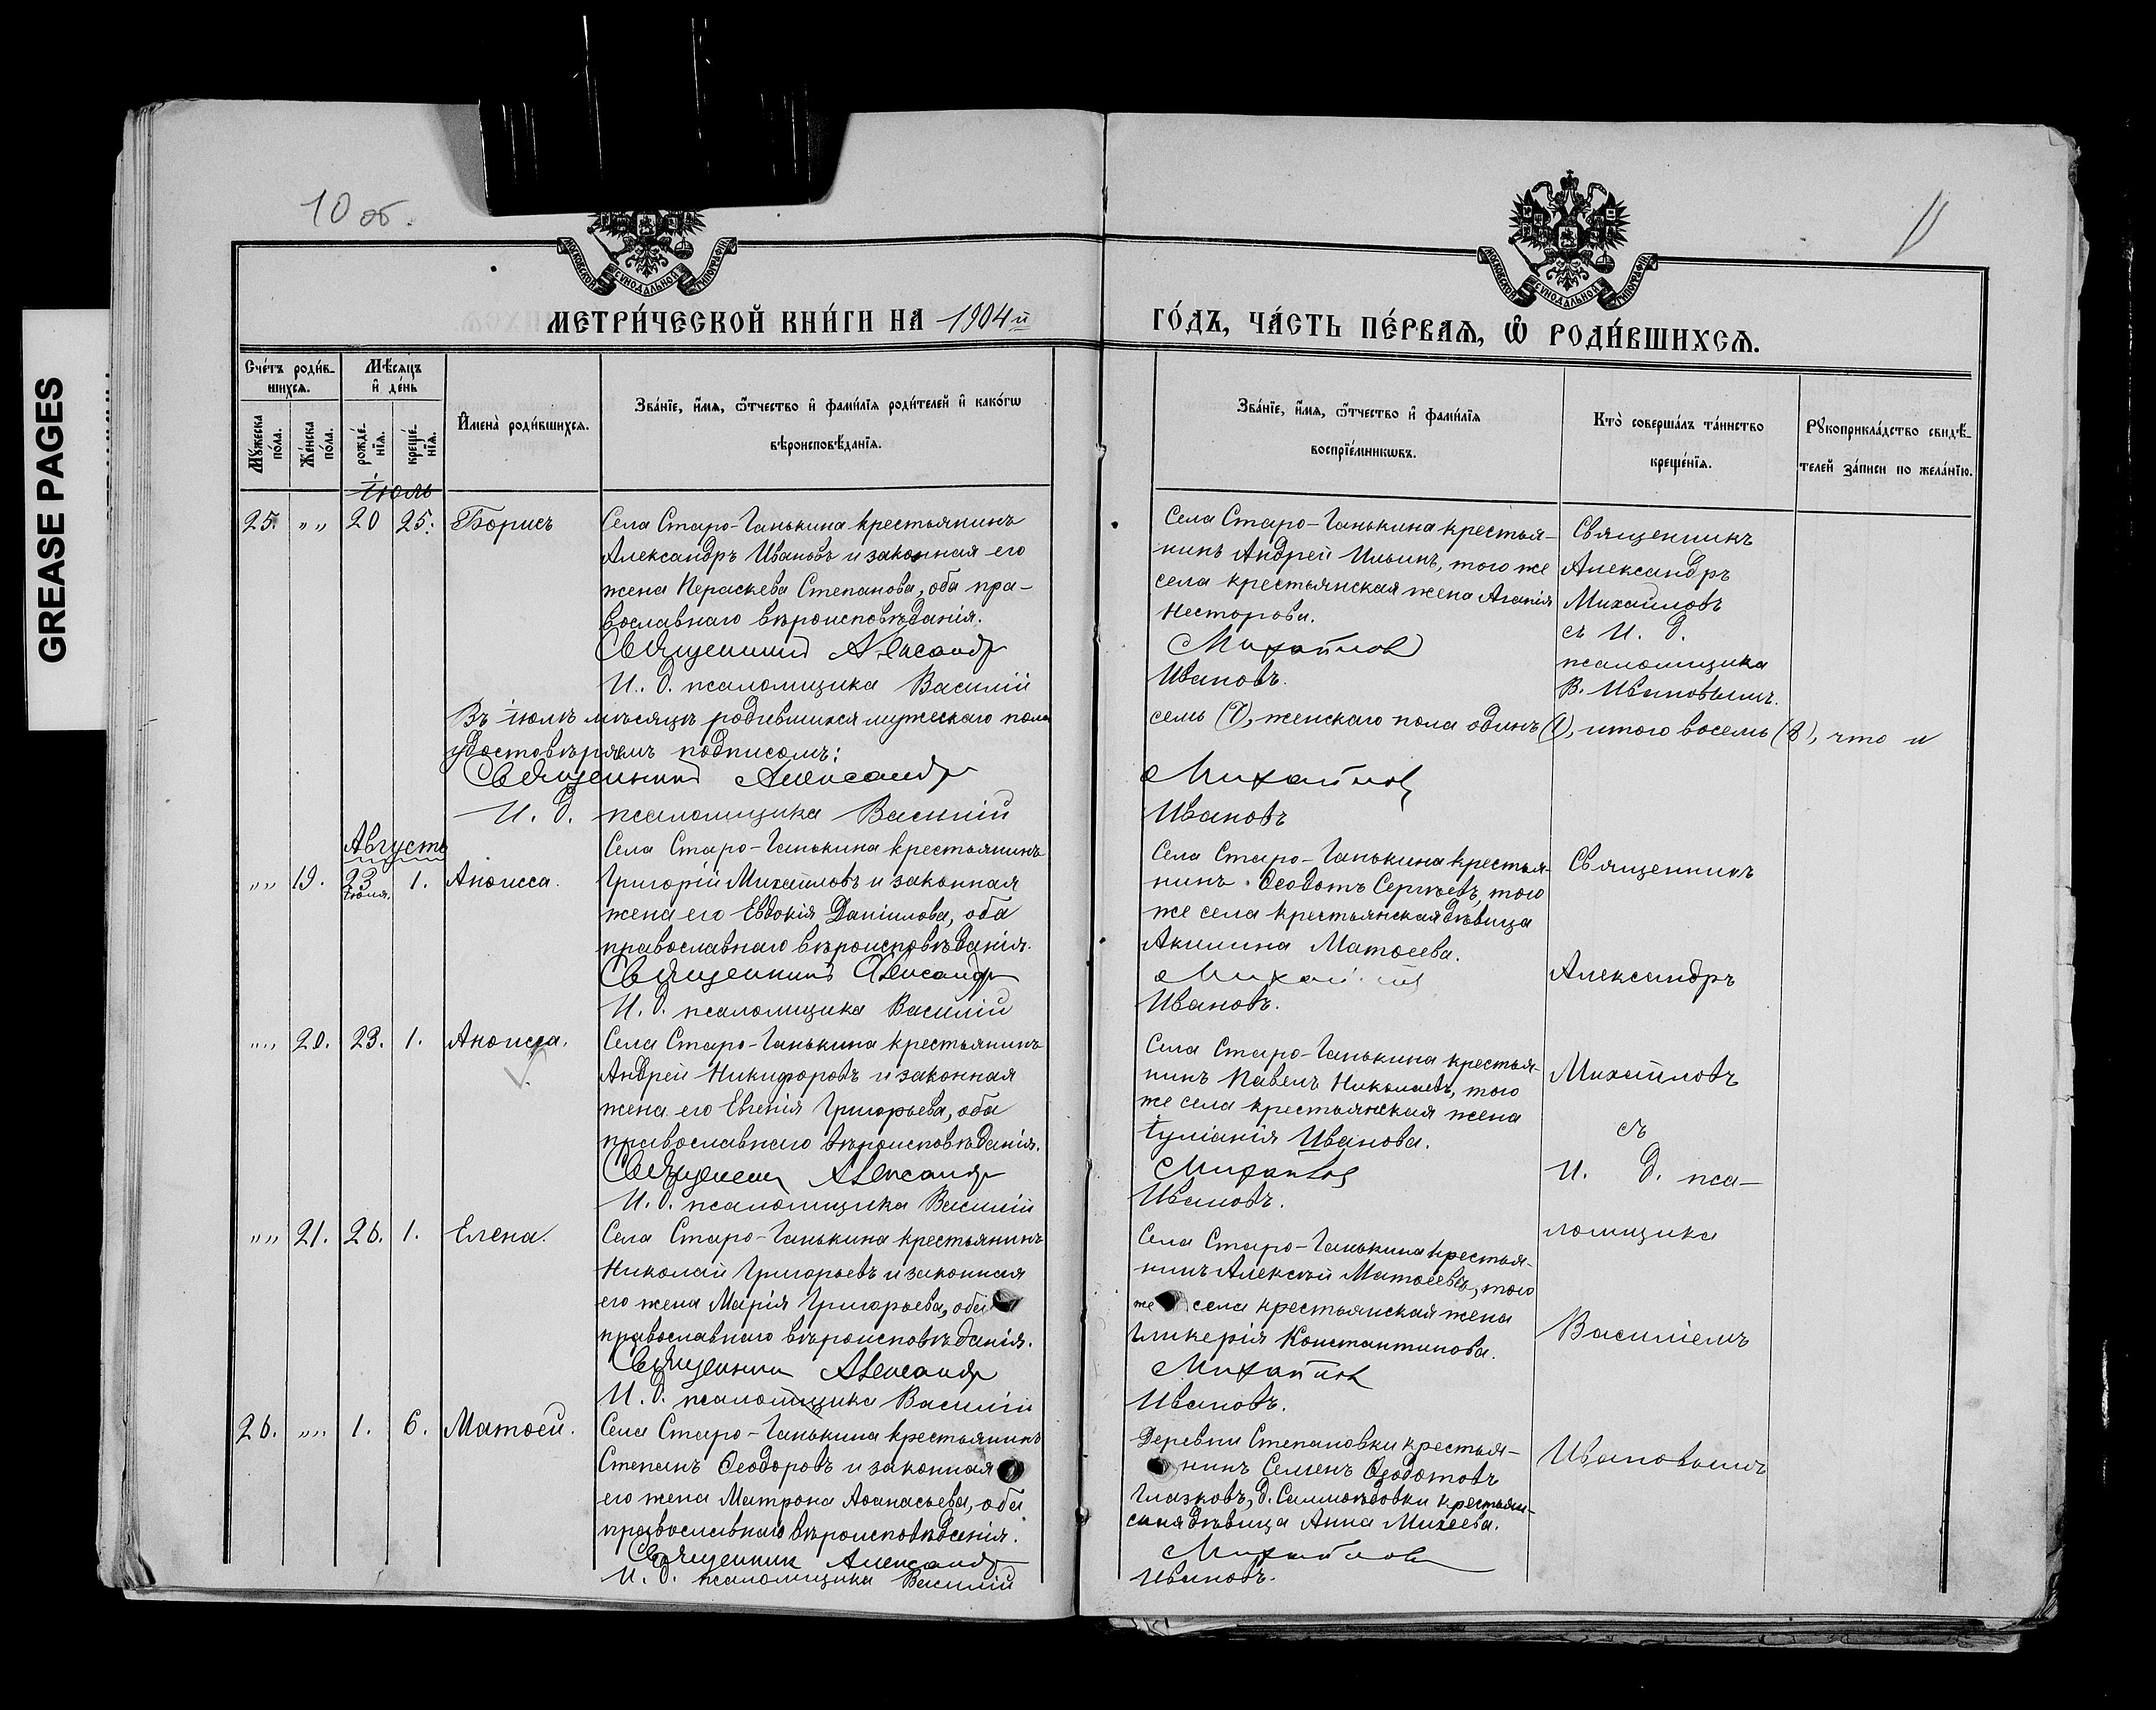 GREASE PAGES
10 об.
11
МОСКОВСКОЙ СѴНОДАЛЬНОЙ ТИПОГРАФІИ
МОСКОВСКОЙ СѴНОДАЛЬНОЙ ТИПОГРАФІИ
МЕТРИ́ЧЕСКОЙ КНИ́ГИ НА 1904й
ГО́ДЪ, ЧА́СТЬ ПЕ́РВАѦ, Ѡ҆ РОДИ́ВШИХСѦ.
Сче́тъ роди́в-
шихсѧ.
Мѣ́сѧцъ
и҆ де́нь
Мꙋ́жеска
по́ла.
Же́нска
по́ла.
рожде́-
нїѧ.
креще́-
нїѧ.
И҆мена̀ роди́вшихсѧ.
Зва́нїе, и҆́мѧ, ѻ҆́тчество и҆ фами́лїѧ роди́телей и҆ како́гѡ
вѣроисповѣ́данїѧ.
Зва́нїе, и҆́мѧ, ѻ҆́тчество и҆ фами́лїѧ
воспрїе́мникѡвъ.
Кто̀ соверша́лъ та́инство
креще́нїѧ.
Рꙋкоприкла́дство свидѣ́-
телей за́писи по жела́нїю.
Іюль
25. „ „ 20 25. Борисъ
Села Старо-Ганькина крестьянинъ
Александръ Ивановъ и законная его
жена Параскева Степанова, оба пра-
вославнаго вѣроисповѣданія.
Священникъ Александръ
И. д. псаломщика Василій
Села Старо-Ганькина крестья-
нинъ Андрей Ильинъ, того же
села крестьянская жена Агапія
Несторова.
Михайловъ
Ивановъ.
Священникъ
Александръ
Михайловъ
съ И. д.
псаломщика
В. Ивановымъ.
Въ іюлѣ мѣсяцѣ родившихся мужескаго пола
семь (7), женскаго пола одинъ (1), итого восемь (8), что и
удостовѣряемъ подписомъ:
Священникъ Александръ
Михайловъ
И. д. псаломщика Василій
Ивановъ
Августъ
„ „ 19. 23 Іюля. 1. Анѳисса.
Села Старо-Ганькина крестьянинъ
Григорій Михайловъ и законная
жена его Евдокія Даніилова, оба
православнаго вѣроисповѣданія.
Священникъ Александръ
И. д. псаломщика Василій
Села Старо-Ганькина крестья-
нинъ Ѳеодотъ Сергѣевъ, того
же села крестьянская дѣвица
Акилина Матѳеева.
Михайловъ
Ивановъ.
Священникъ
Александръ
„ „ 20. 23. 1. Анѳисса.
Села Старо-Ганькина крестьянинъ
Андрей Никифоровъ и законная
жена его Евгенія Григорьева, оба
православнаго вѣроисповѣданія.
Священникъ Александръ
И. д. псаломщика Василій
Села Старо-Ганькина крестья-
нинъ Павелъ Николаевъ, того
же села крестьянская жена
Іуліанія Иванова.
Михайловъ
Ивановъ.
Михайловъ
съ
И. д. пса-
„ „ 21. 26. 1. Елена.
Села Старо-Ганькина крестьянинъ
Николай Григорьевъ и законная
его жена Марія Григорьева, оба
православнаго вѣроисповѣданія.
Священникъ Александръ
И. д. псаломщика Василій
Села Старо-Ганькина крестья-
нинъ Алексѣй Матѳеевъ, того
же села крестьянская жена
Гликерія Константинова.
Михайловъ
Ивановъ.
ломщика
Василіемъ
26. „ „ 1. 6. Матѳей.
Села Старо-Ганькина крестьянинъ
Степанъ Ѳеодоровъ и законная
его жена Матрона Аѳанасьева, оба
православнаго вѣроисповѣданія.
Священникъ Александръ
И. д. псаломщика Василій
Деревни Степановки крестья-
нинъ Семенъ Ѳеодотовъ
Глазковъ, д. крестьян-
ская дѣвица Анна Михеева.
Михайловъ
Ивановъ.
Ивановымъ